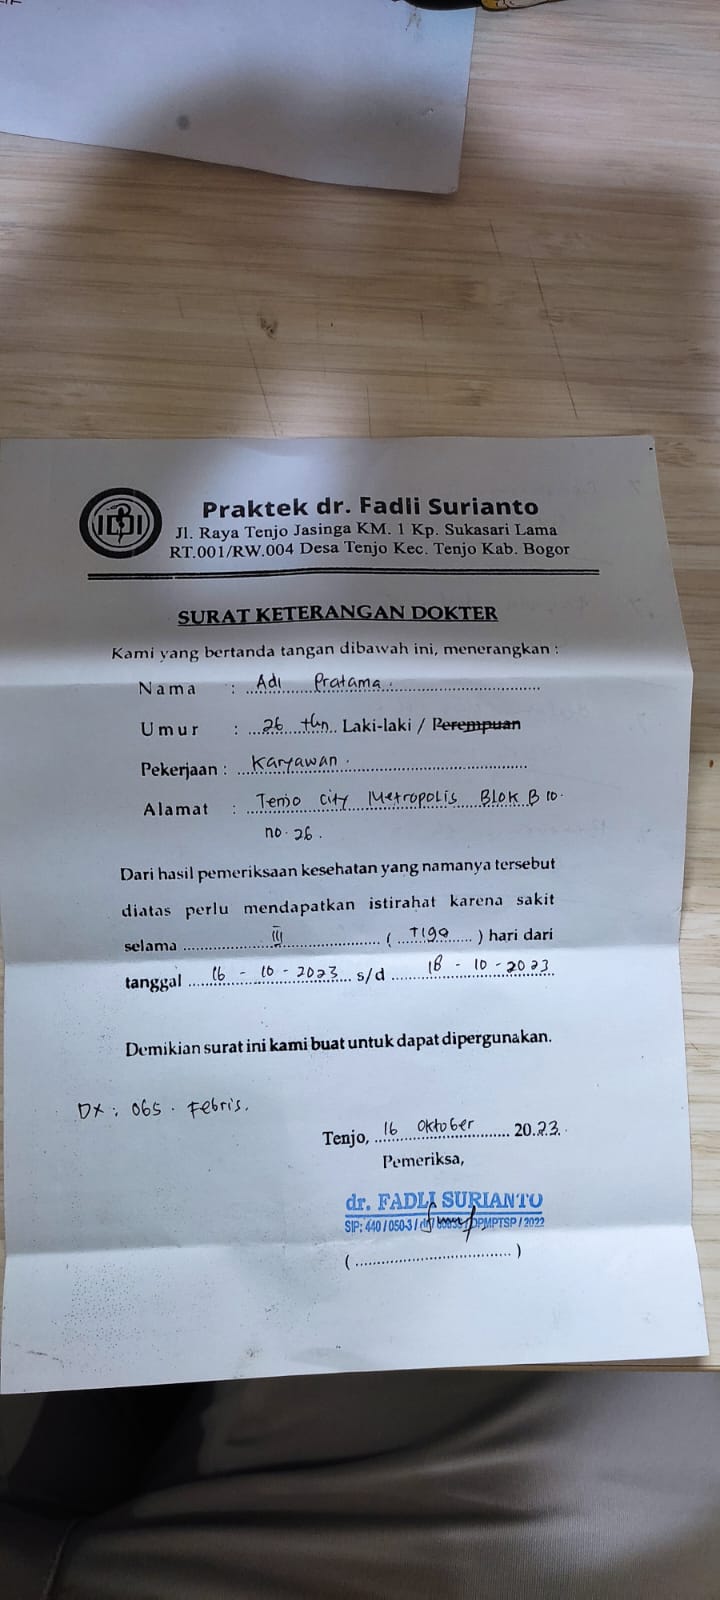 IDI
Praktek dr. Fadli Surianto
Jl. Raya Tenjo Jasinga KM. 1 Kp. Sukasari Lama
RT.001/RW.004 Desa Tenjo Kec. Tenjo Kab. Bogor
SURAT KETERANGAN DOKTER
Kami yang bertanda tangan dibawah ini, menerangkan :
Nama : Adi Pratama.
Umur : 26 thn. Laki-laki / Perempuan
Pekerjaan : Karyawan.
Alamat : Tenjo City Metropolis Blok B 10.
no. 26.
Dari hasil pemeriksaan kesehatan yang namanya tersebut
diatas perlu mendapatkan istirahat karena sakit
selama III ( Tiga ) hari dari
tanggal 16 - 10 - 2023 s/d 18 - 10 - 2023
Demikian surat ini kami buat untuk dapat dipergunakan.
DX : OBS. Febris.
Tenjo, 16 Oktober 2023.
Pemeriksa,
dr. FADLI SURIANTO
SIP: 440 / 050-3 / DPMPTSP / 2022
(..................................)